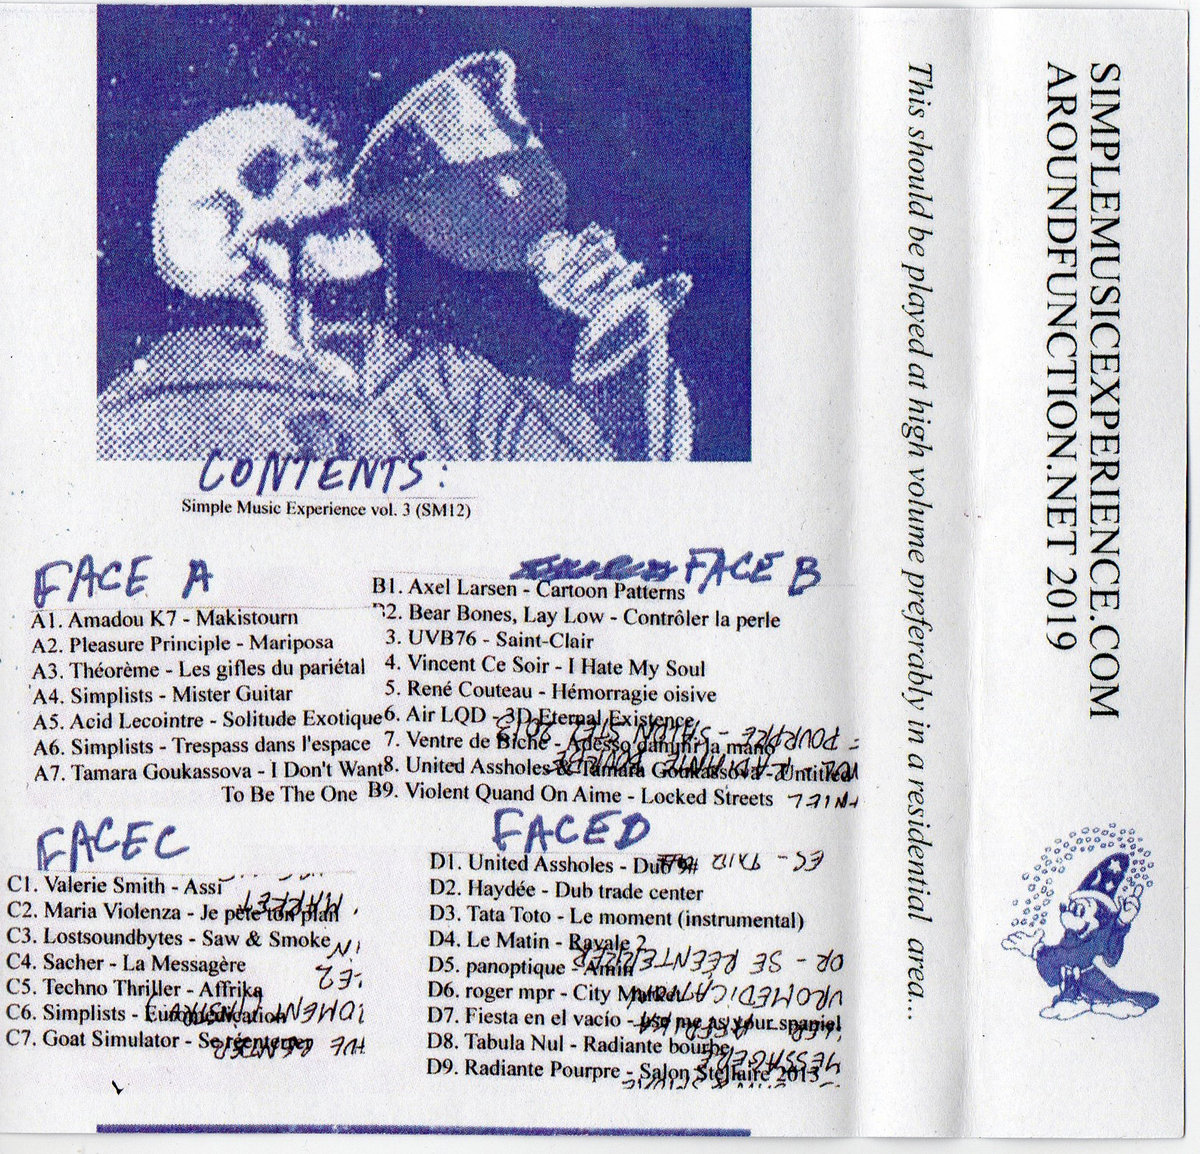 CONTENTS:
Simple Music Experience vol. 3 (SM12)
FACE A
A1. Amadou K7 - Makistourn
A2. Pleasure Principle - Mariposa
A3. Théorème - Les gifles du pariétal
A4. Simplists - Mister Guitar
A5. Acid Lecointre - Solitude Exotique
A6. Simplists - Trespass dans l'espace
A7. Tamara Goukassova - I Don't Want
To Be The One
FACE B
B1. Axel Larsen - Cartoon Patterns
B2. Bear Bones, Lay Low - Contrôler la perle
3. UVB76 - Saint-Clair
4. Vincent Ce Soir - I Hate My Soul
5. René Couteau - Hémorragie oisive
6. Air LQD - 3D Eternal Existence
7. Ventre de Biche - Adesso dammi la mano
8. United Assholes & Tamara Goukassova - Untitled
B9. Violent Quand On Aime - Locked Streets
FACE C
C1. Valerie Smith - Assi
C2. Maria Violenza - Je pète ton plan
C3. Lostsoundbytes - Saw & Smoke
C4. Sacher - La Messagère
C5. Techno Thriller - Affrika
C6. Simplists - Euromedication
C7. Goat Simulator - Se réenterrer
FACE D
D1. United Assholes - Dub 9#
D2. Haydée - Dub trade center
D3. Tata Toto - Le moment (instrumental)
D4. Le Matin - Ravale 2
D5. panoptique - Amin
D6. roger mpr - City Market
D7. Fiesta en el vacío - Use me as your spaniel
D8. Tabula Nul - Radiante bourbe
D9. Radiante Pourpre - Salon Stellaire 2013
This should be played at high volume preferably in a residential area...
SIMPLEMUSICEXPERIENCE.COM
AROUNDFUNCTION.NET 2019